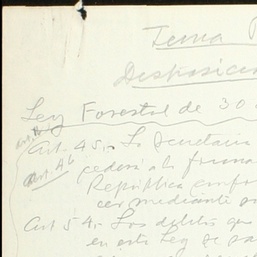 Tema
Disposicion
Ley Forestal de 30 d
Art. 45.- La Secretaria
Art. 46
cederá a la
República
cer mediante
Art 54.- Los delitos que
en esta Ley se